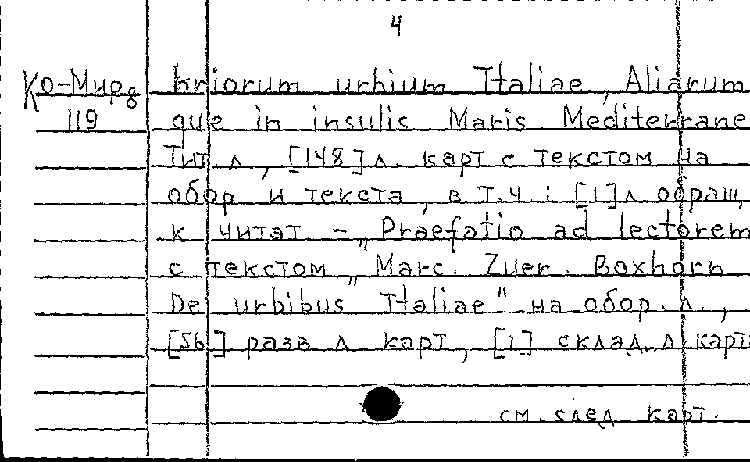 4
Ко-Мира briorum urbium Italiae, Aliarum
119 que in insulis Maris Mediterrane
Тит. л., [148] л. карт с текстом на
обор. и текста, в т.ч.: [1] л обращ.
к читат. - „Praefatio ad lectorem
с текстом „Marc. Zuer. Boxhorn
De urbibus Italiae" на обор. л.,
[56] разв л. карт, [1] склад. л. карт
см. след. карт.